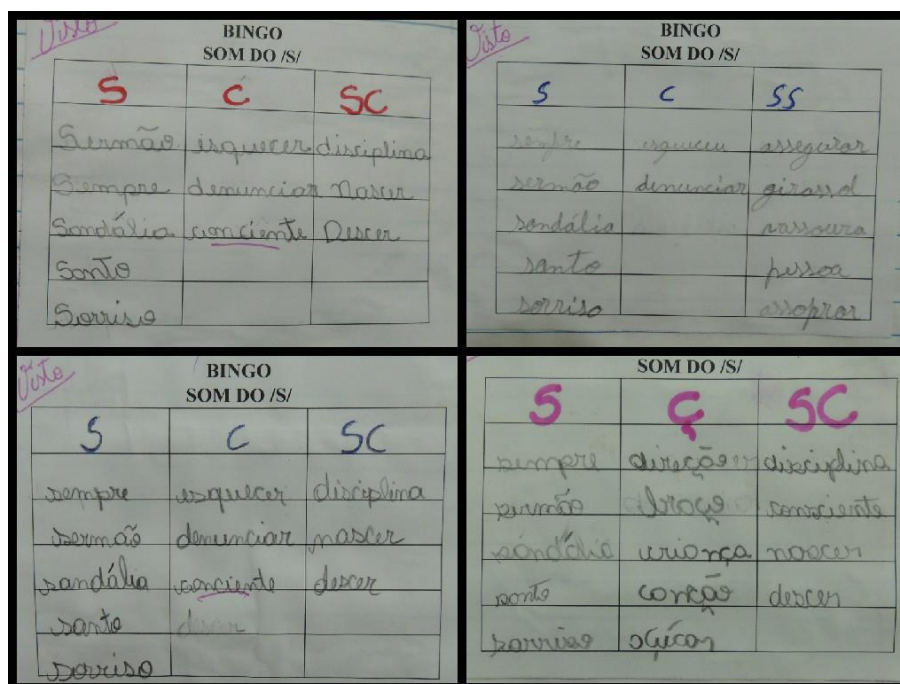 Visto
BINGO
SOM DO /S/
S C SC
Sermão esquecer disciplina
Sempre denunciar Nascer
Sandália conciente Descer
Santo
Sorriso
Visto
BINGO
SOM DO /S/
S C SS
sempre esqueceu assegurar
sermão denunciar girassol
sandália vassoura
santo pessoa
sorriso assoprar
Visto
BINGO
SOM DO /S/
S C SC
sempre esquecer disciplina
sermão denunciar nascer
sandália conciente descer
santo
sorriso
SOM DO /S/
S Ç SC
sempre direção disciplina
sermão braço consciente
sandália criança nascer
santo canção descer
sorriso açúcar